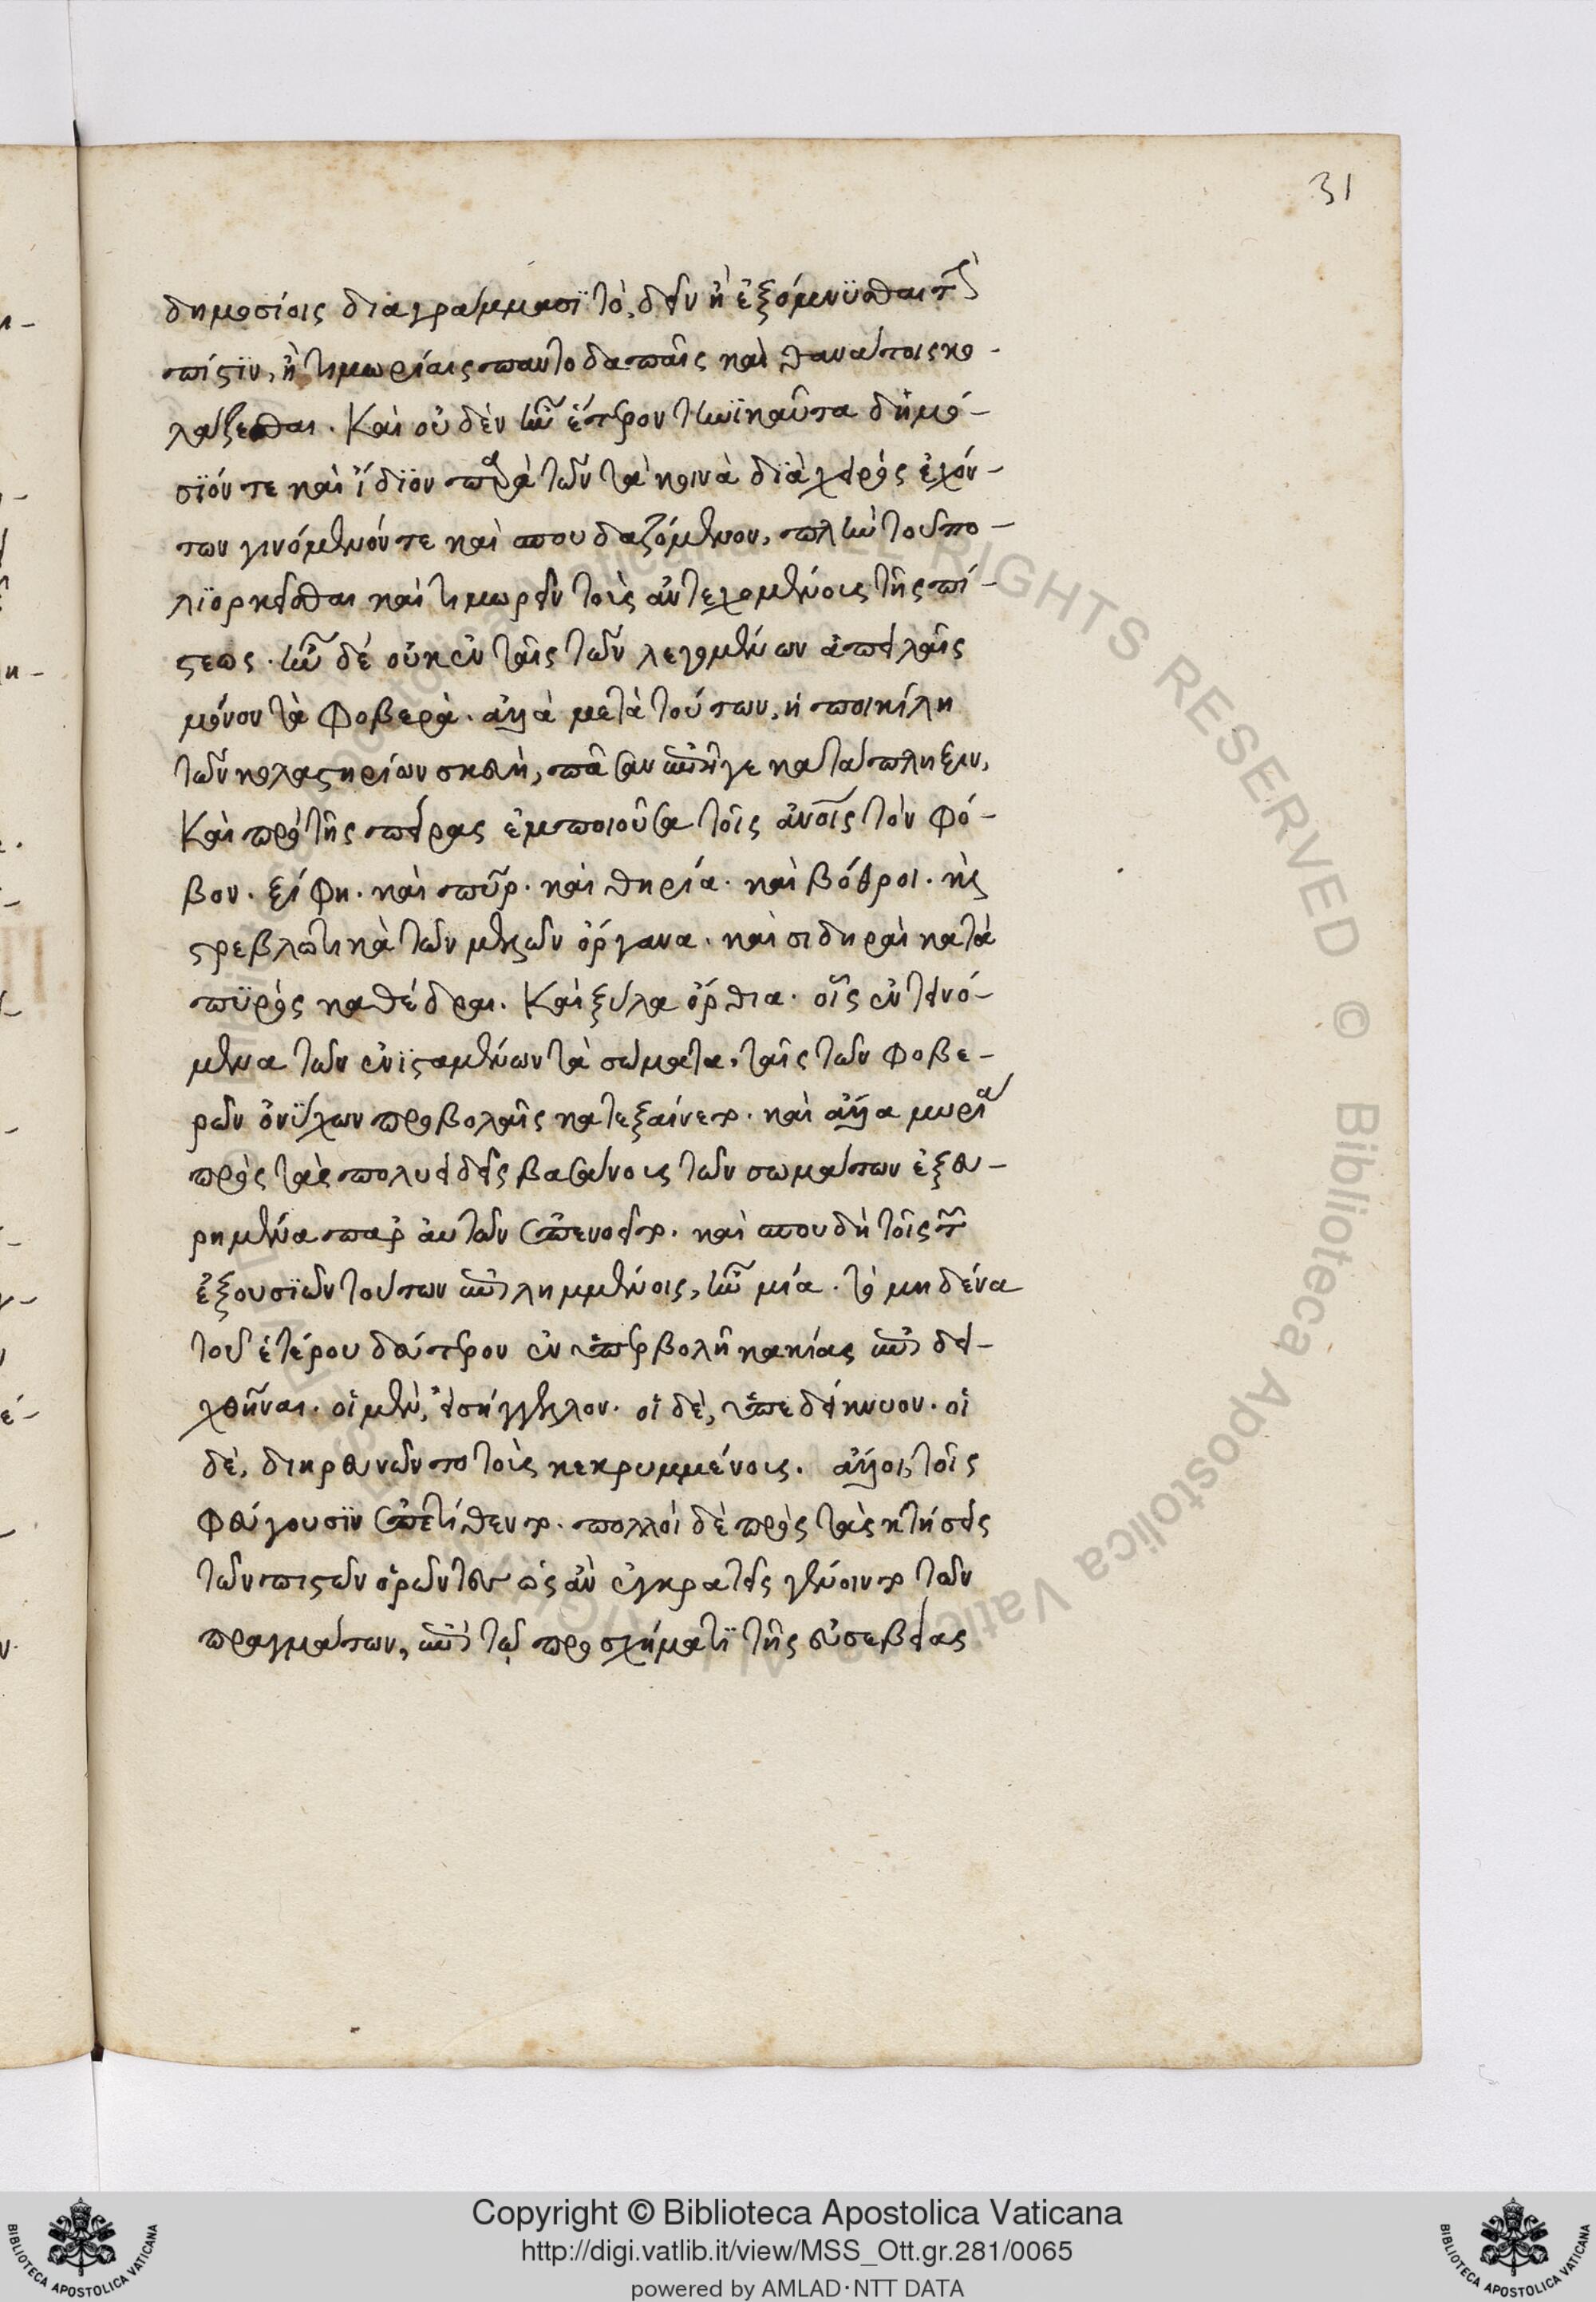 31
δημοσίοις διαγράμμασϊ τὸ, δεῖν ἢ ἐξόμνϋσθαι τὴν
πίστϊν, ἢ τιμωρίαις παντοδαπαῖς καὶ θανάτοις κο-
λάζεσθαι. Καὶ οὐδὲν ἦν ἕτερον τηνϊκαῦτα δημό-
σϊόν τε καὶ ἴδϊον παρὰ τῶν τὰ κοινὰ δϊὰ χειρὸς ἐχόν-
των γινόμενόν τε καὶ σπουδαζόμενον, πλὴν τοῦ πο-
λϊορκεῖσθαι καὶ τιμωρεῖν τοὺς ἀντεχομένους τῆς πί-
στεως. ἦν δὲ οὐκ ἐν ταῖς τῶν λεγομένων ἀπειλαῖς
μόνον τὰ φοβερά. ἀλλὰ μετὰ τούτων, ἡ ποικίλη
τῶν κολαστηρίων σκευὴ, πᾶσαν ἐπῆγε κατάπληξιν,
Καὶ πρὸ τῆς πείρας ἐμποιοῦσα τοῖς ἀνοις τὸν φό-
βον. ξίφη. καὶ πῦρ. καὶ θηρία. καὶ βόθροι. κὶ
στρεβλωτικὰ τῶν μελῶν ὄργανα. καὶ σιδηραὶ κατὰ
πϋρὸς καθέδραι. Καὶ ξύλα ὄρθια. οἷς ἐντεινό-
μενα τῶν ἐνϊσταμένων τὰ σώματα, ταῖς τῶν φοβε-
ρῶν ὀνϋχων προβολαῖς κατεξαίνετο. καὶ ἄλλα μυρία
πρὸς τὰς πολυειδεῖς βασάνους τῶν σωμάτων ἐξευ-
ρημένα παρ' αὐτῶν ἐπενοεῖτο. καὶ σπουδὴ τοῖς τὴν
ἐξουσϊῶν τούτων ἐπειλημμένοις, ἦν μία. τὸ μηδένα
τοῦ ἑτέρου δεύτερον ἐν ὑπερβολῇ κακίας ἐπιδει-
χθῆναι. οἱ μὲν, εἰσήγγελλον. οἱ δὲ, ὑπεδείκνυον. οἱ
δὲ, διηρευνῶντο τοὺς κεκρυμμένους. ἄλλοι, τοῖς
φεύγουσϊν ἐπετίθεντο. πολλοὶ δὲ πρὸς τὰς κτήσεις
τῶν πιστῶν ὁρῶντες ὡς ἂν ἐγκρατεῖς γένοιντο τῶν
πραγμάτων, ἐπὶ τῷ προσχήματϊ τῆς εὐσεβείας
Copyright © Biblioteca Apostolica Vaticana
http://digi.vatlib.it/view/MSS_Ott.gr.281/0065
powered by AMLAD·NTT DATA
BIBLIOTECA APOSTOLICA VATICANA
BIBLIOTECA APOSTOLICA VATICANA